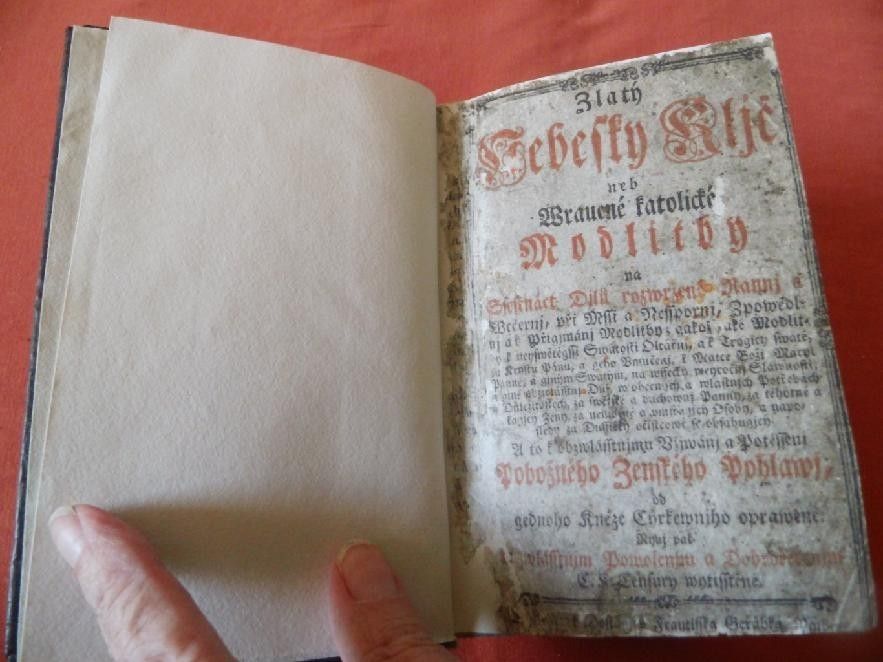 Zlatý
Nebeſky Kljč
neb
Wraucné katolické
Modlitby
na
Sſeſtnáct Djlů rozwržené Rannj a
Wečernj, při Mſſi a Neſſpornj, Zpowěd-
nj a k Přigjmánj Modlitby; gakož také Modlit-
by k neyſwětěgſſj Swátoſti Oltářnj, a k Trogici ſwaté,
za Kryſtu Pánu, a geho Vmučenj, k Matce Boži Maryi
Panně, a giným Swatým, na wſſecky weyročnj Slawnoſti,
w obecných a wlaſtnjch Potřebách
Důležitoſtech, za ſwětſké a duchownj Panny, za těhotné a
Ženy, za nemocné a Oſoby, a napo-
ſledy za Duſſičky očiſtcowé ſe obſahugjcý.
A to k obzwláſſtnjmu Vžjwánj a Potěſſenj
Pobožného Ženſkého Pohlawj,
od
gednoho Kněze Cýrkewnjho oprawené.
Nynj pak
Powolenjm a
C. k. Cenſury wytiſſtěné.
Frantiſſka Geřábka